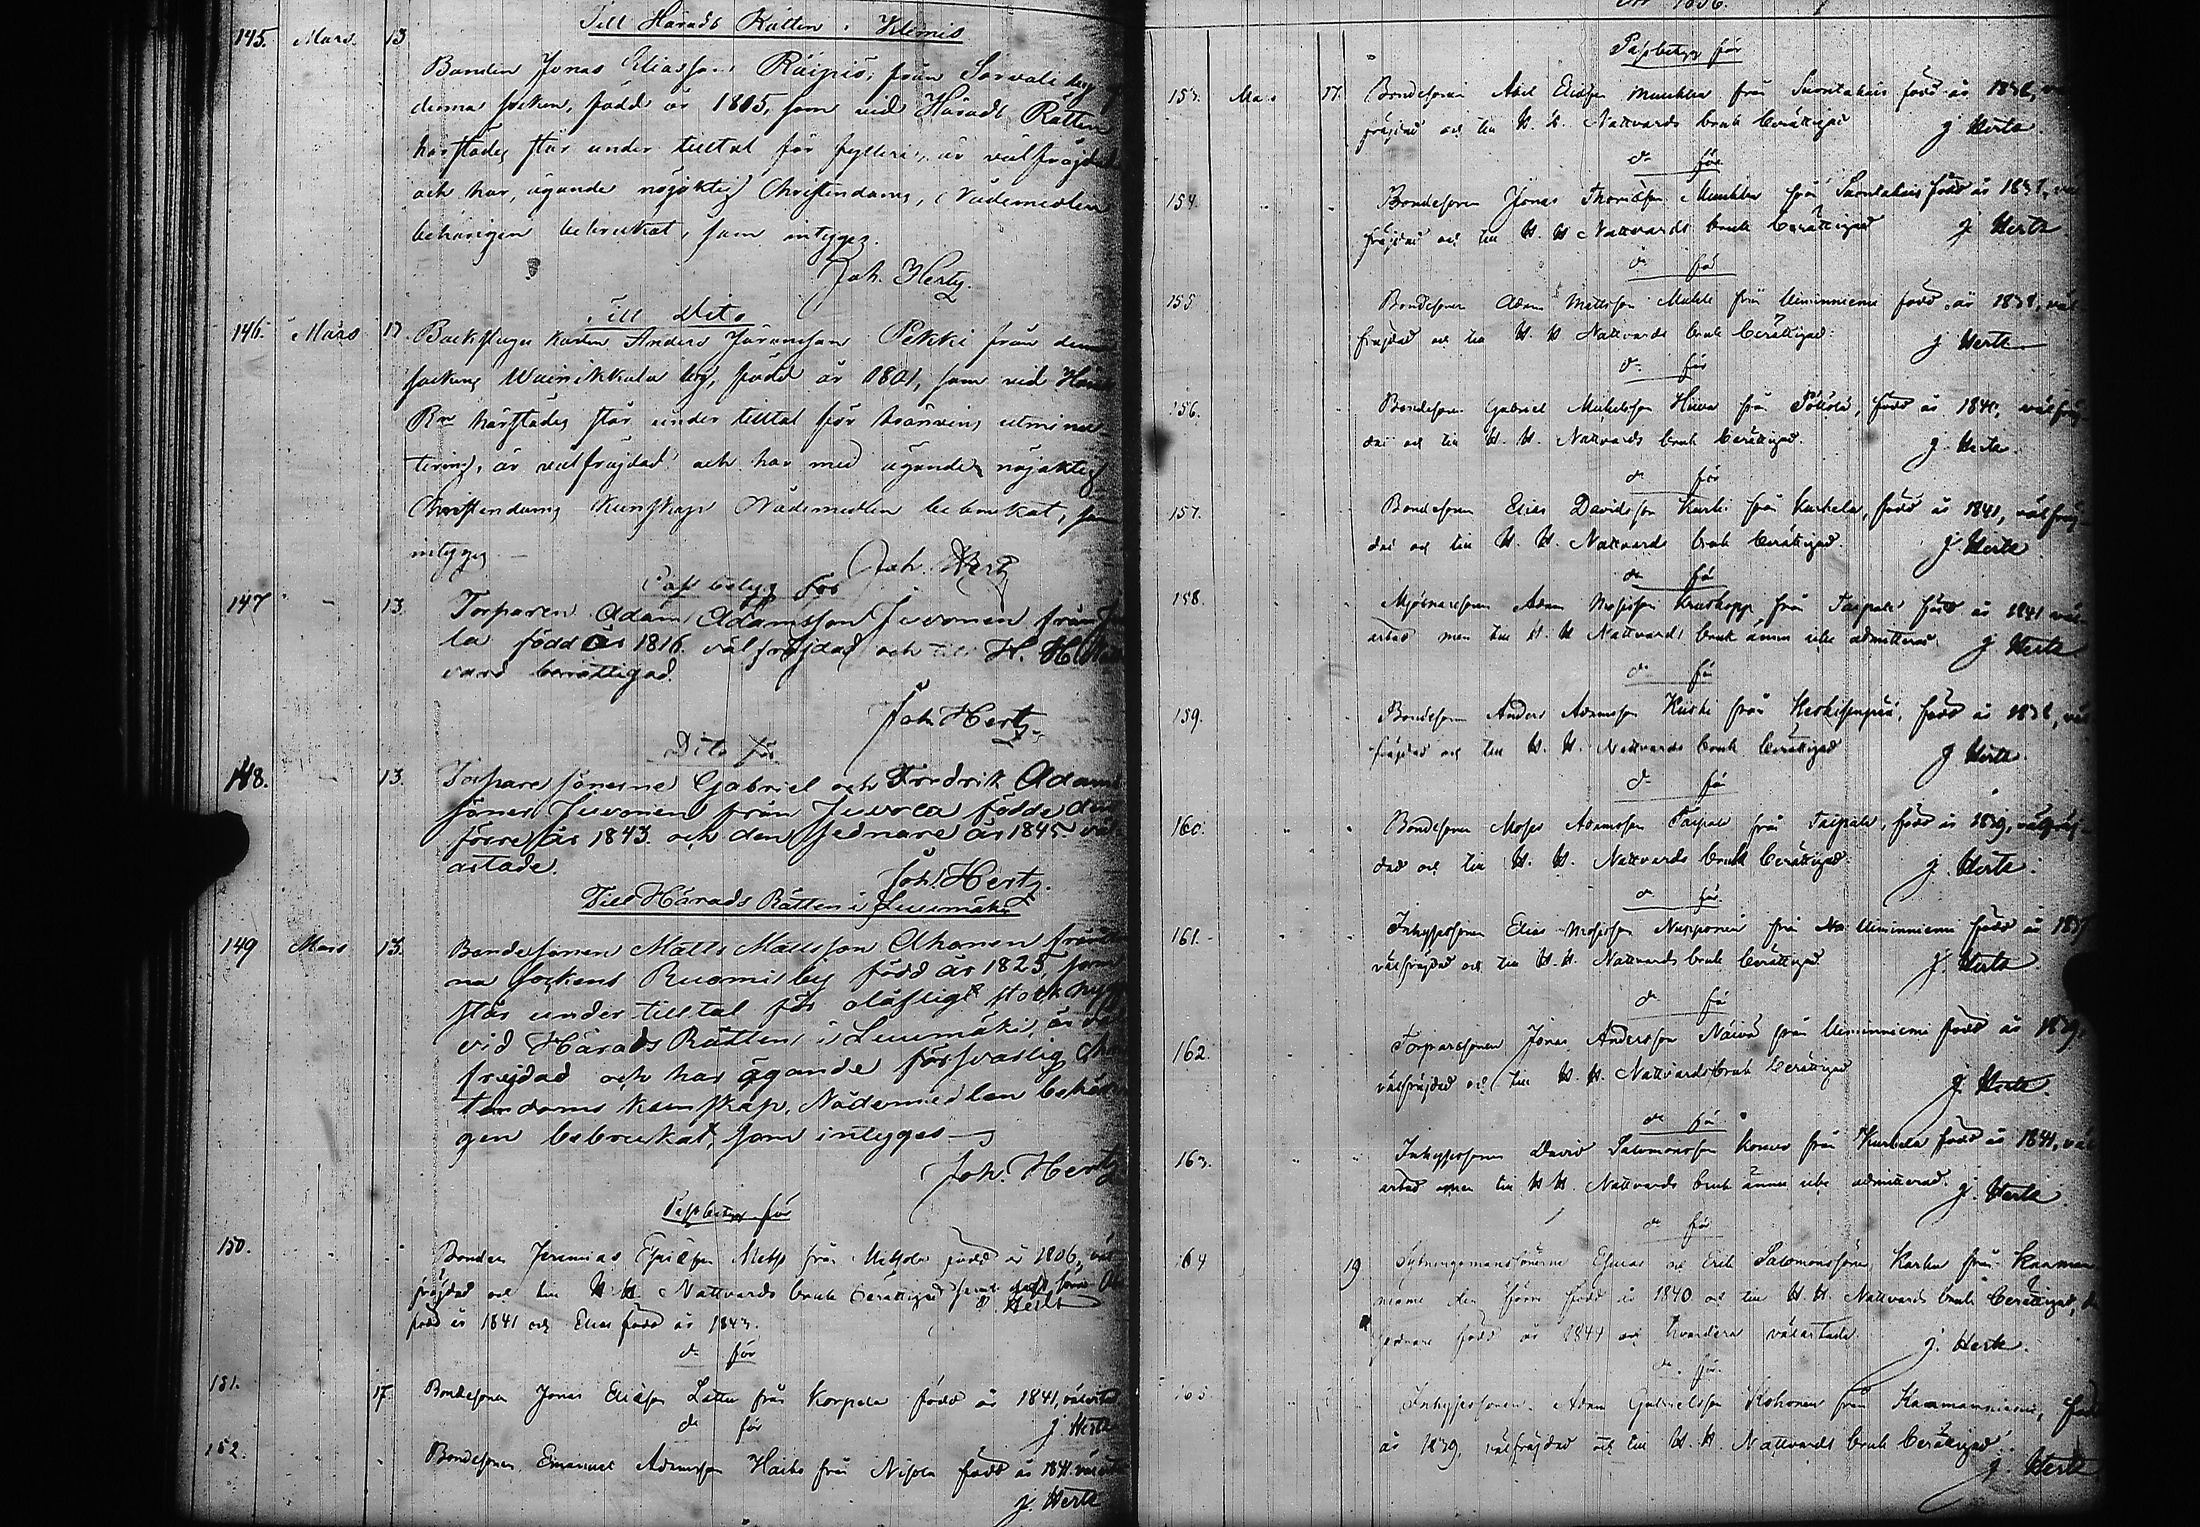 Till Härads Rätten i Klemis
145. Mars. 13
Bonden Jonas Eliasson Räipiö, från Sarvala by i
denna socken, född år 1805, som vid Härads Rätten
härstädes står under tilltal för fylleri, är välfrejdad
och har, ägande nöjaktig Christendoms, Nådemedlen
behörigen bebrukat, som intygas.
Joh. Hertz.
Till Dito
146. Mars 13. Backstugu karlen Anders Göransson Pekki från denna
sockens Wainikkala by, född år 1801, som vid Härads
Rn härstädes står under tilltal för bränvins utminu-
tering, är välfrejdad och har med ägande nöjaktig
Christendoms kunskap Nådemedlen bebrukat, som
intygas
Joh. Hertz
Pass betyg för
147 " - 13. Torparen Adam Adamsson Juvonen från Ju
la född år 1816 välfrejdad och till H. H. Natt
vard berättigad.
Joh. Hertz
Dito för
148. 13. Torpare sönerne Gabriel och Fredrik Adams
söner Juvonen från Juvola födde den
förre år 1843. och den sednare år 1845 väl
artade.
Joh. Hertz.
Till Härads Rätten i Luumäki
149 Mars 13. Bondesonen Matts Mattsson Ahonen från den
na sockens Ruomi by född år 1825, som
står under tilltal för olofligt stock hygge
vid Härads Rätten i Luumäki, är väl
frejdad och har ägande försvarlig Chris
tendoms kunskap, Nådemedlen behöri
gen bebrukat, som intygas
Joh. Hertz
Passbetyg för
150. Bonden Jeremias född år 1806, väl
fräjdad och till H. H. Nattvards bruk berättigad samt
J Hertz
född år 1841 och Elias född år 1843.
do för
151. 17. Bondesonen Jonas Eliasson Lattu från Korpela född år 1841, välartad
J. Hertz
do för
152. Bondesonen Emanuel Adamsson från född år 1841 välartad
J. Hertz
Passbetyg för
153. Mars 17. Bondesonen Abel Eliasson Munkko från Suontakais född år 1838, väl
fräjdad och till H. H. Nattvards bruk berättigad J Hertz.
do för
154. Bondesonen Jonas Thomasson Munkko från Suontakais född år väl
fräjdad och till H. H Nattvards bruk berättigad J Hertz
do för
155. Bondesonen Adam Mattsson från Uiminniemi född år väl
fräjdad och till H. H Nattvards bruk berättigad. J Hertz
do för
156. Bondesonen Gabriel Mickelsson från född år 1840, välfräj-
dad och till H. H. Nattvards bruk berättigad. J. Hertz.
do för
157. Bondesonen Elias Davidsson Kurki från Kurkela, född år 1841, välfräj-
dad och till H. H. Nattvards bruk berättigad. J Hertz
do för
158. Mjölnaresonen Adam Mosisson från Taipale född år 1841 väl
artad men till H. H Nattvards bruk ännu icke admitterad. J Hertz
do för
159. Bondesonen Anders Adamsson från född år väl
fräjdad och till H. H. Nattvards bruk berättigad J Hertz
do för
160. Bondesonen Moses Adamsson Taipale från Taipale, född år 1839, välfräj-
dad och till H. H. Nattvards bruk berättigad. J. Hertz.
do för
161. Inhysessonen Elias Mosisson från Uiminniemi född år
välfräjdad och till H. H. Nattvards bruk berättigad. J. Hertz
do för
162. Torparesonen Jonas Andersson från Uiminniemi född år 1839,
välfräjdad och till H. H. Nattvards bruk berättigad
J. Hertz.
do för
163. Inhysessonen David Salomonsson från Kurkela född år 1841, väl
artad men till H H. Nattvards bruk ännu icke admitterad. J. Hertz.
do för
164 19 Sytningsmanssönerne Esaias och Erik Salomonssöner från Kaaman
niemi den förre född år 1840 och till H. H. Nattvards bruk berättigad, den
sednare född år 1844 och hvardera välartade J. Hertz.
do för
165 Inhysessonen Adam Gabrielsson Kohonen från Kaamanniemi, född
år 1839, välfräjdad och till H. H. Nattvards bruk berättigad.
J. Hertz